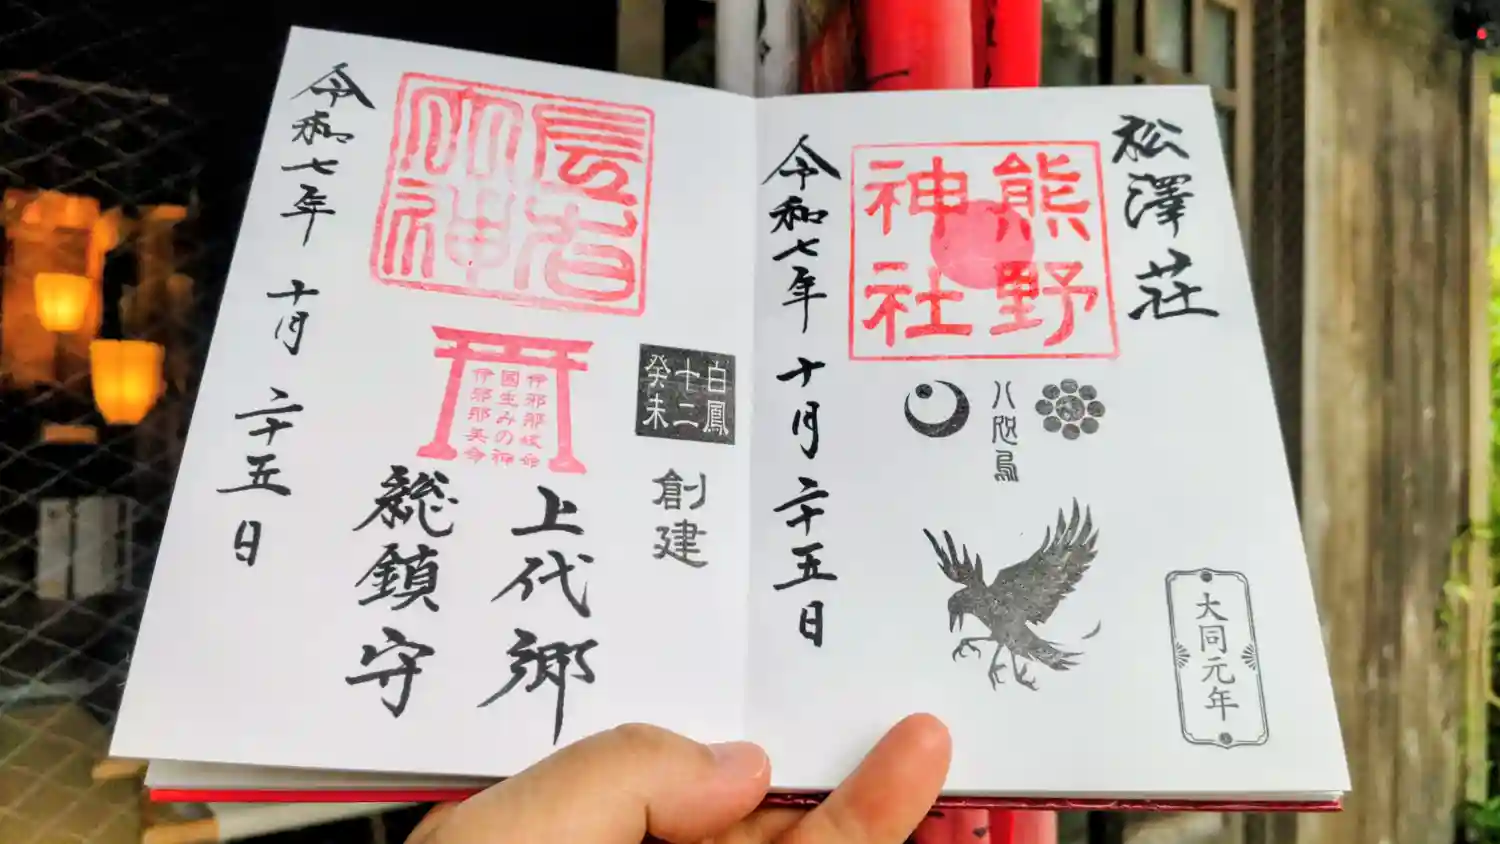 松澤荘
熊野
神社
八咫烏
大同元年
令和七年 十月 二十五日
白鳳
十二
癸未
創建
伊邪那岐命
國生みの神
伊邪那美命
上代郷
総鎮守
令和七年 十月 二十五日